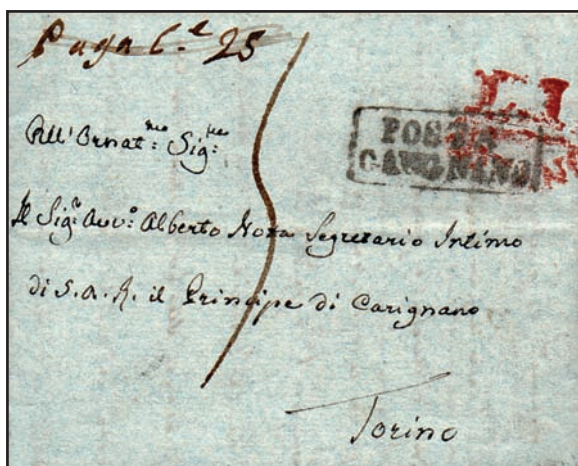 Paga C.e 25
All'Ornat:mo Sig:re
Il Sig.r Avv.o Alberto Nota Segretario Intimo
di S. A. R. il Principe di Carignano
Torino